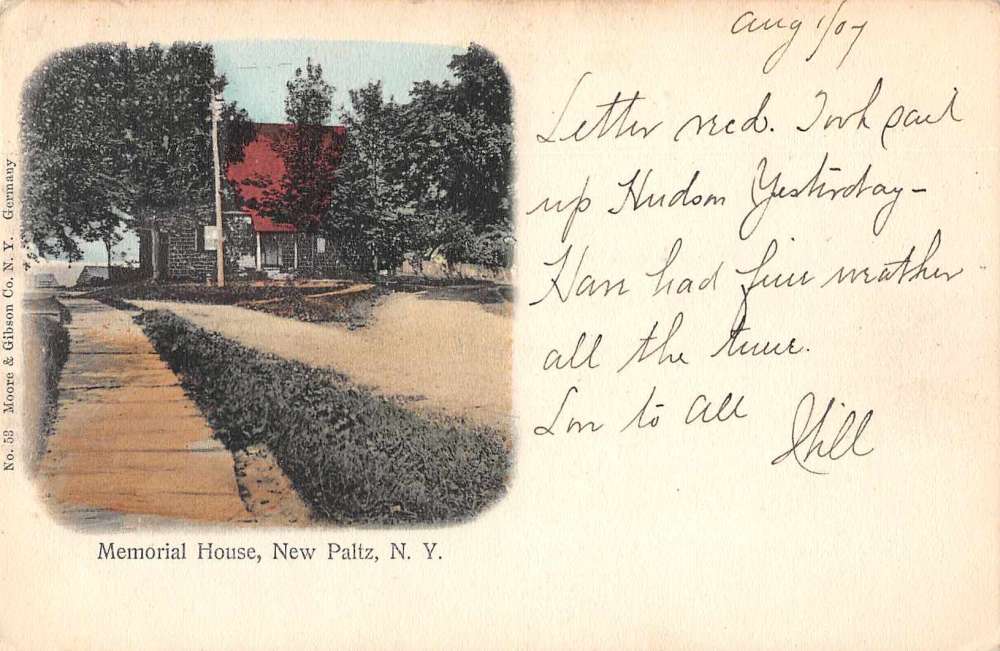 Aug 1/07
Letter recd. Took sail
up Hudson Yesterday -
Have had fine weather
all the time.
Love to all
Will
Memorial House, New Paltz, N. Y.
No. 53 Moore & Gibson Co. N. Y. Germany